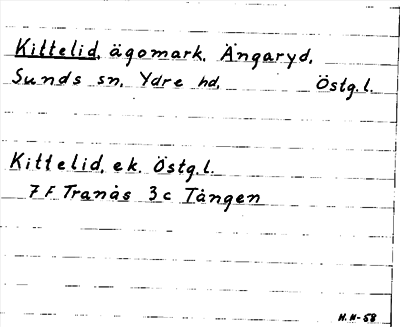 Kittelid, ägomark. Ängaryd,
Sunds sn, Ydre hd, Östg.l.
Kittelid, ek. Östg.l.
7 F Tranås 3c Tången
H.H-58